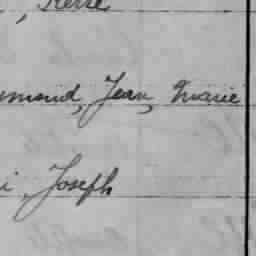 , Pierre
mond, Jean, Marie
i Joseph